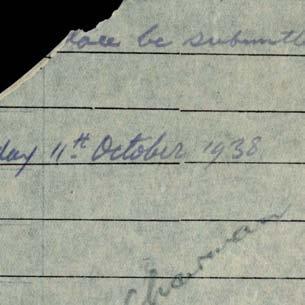 be submitt
day 11th October 1938
Chairman